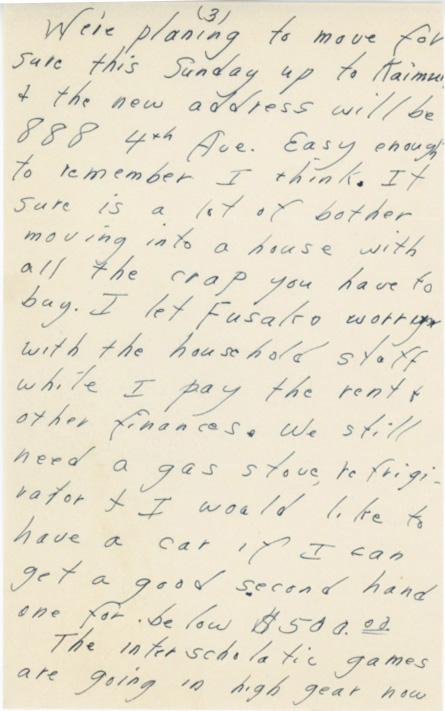 (3)
We're planing to move for
sure this Sunday up to Kaimu
& the new address will be
888 4th Ave. Easy enough
to remember I think. It
sure is a lot of bother
moving into a house with
all the crap you have to
buy. I let Fusako worry
with the household stuff
while I pay the rent &
other finances. We still
need a gas stove, refrigi-
rator & I would like to
have a car if I can
get a good second hand
one for below $500.00
The interscholatic games
are going in high gear now